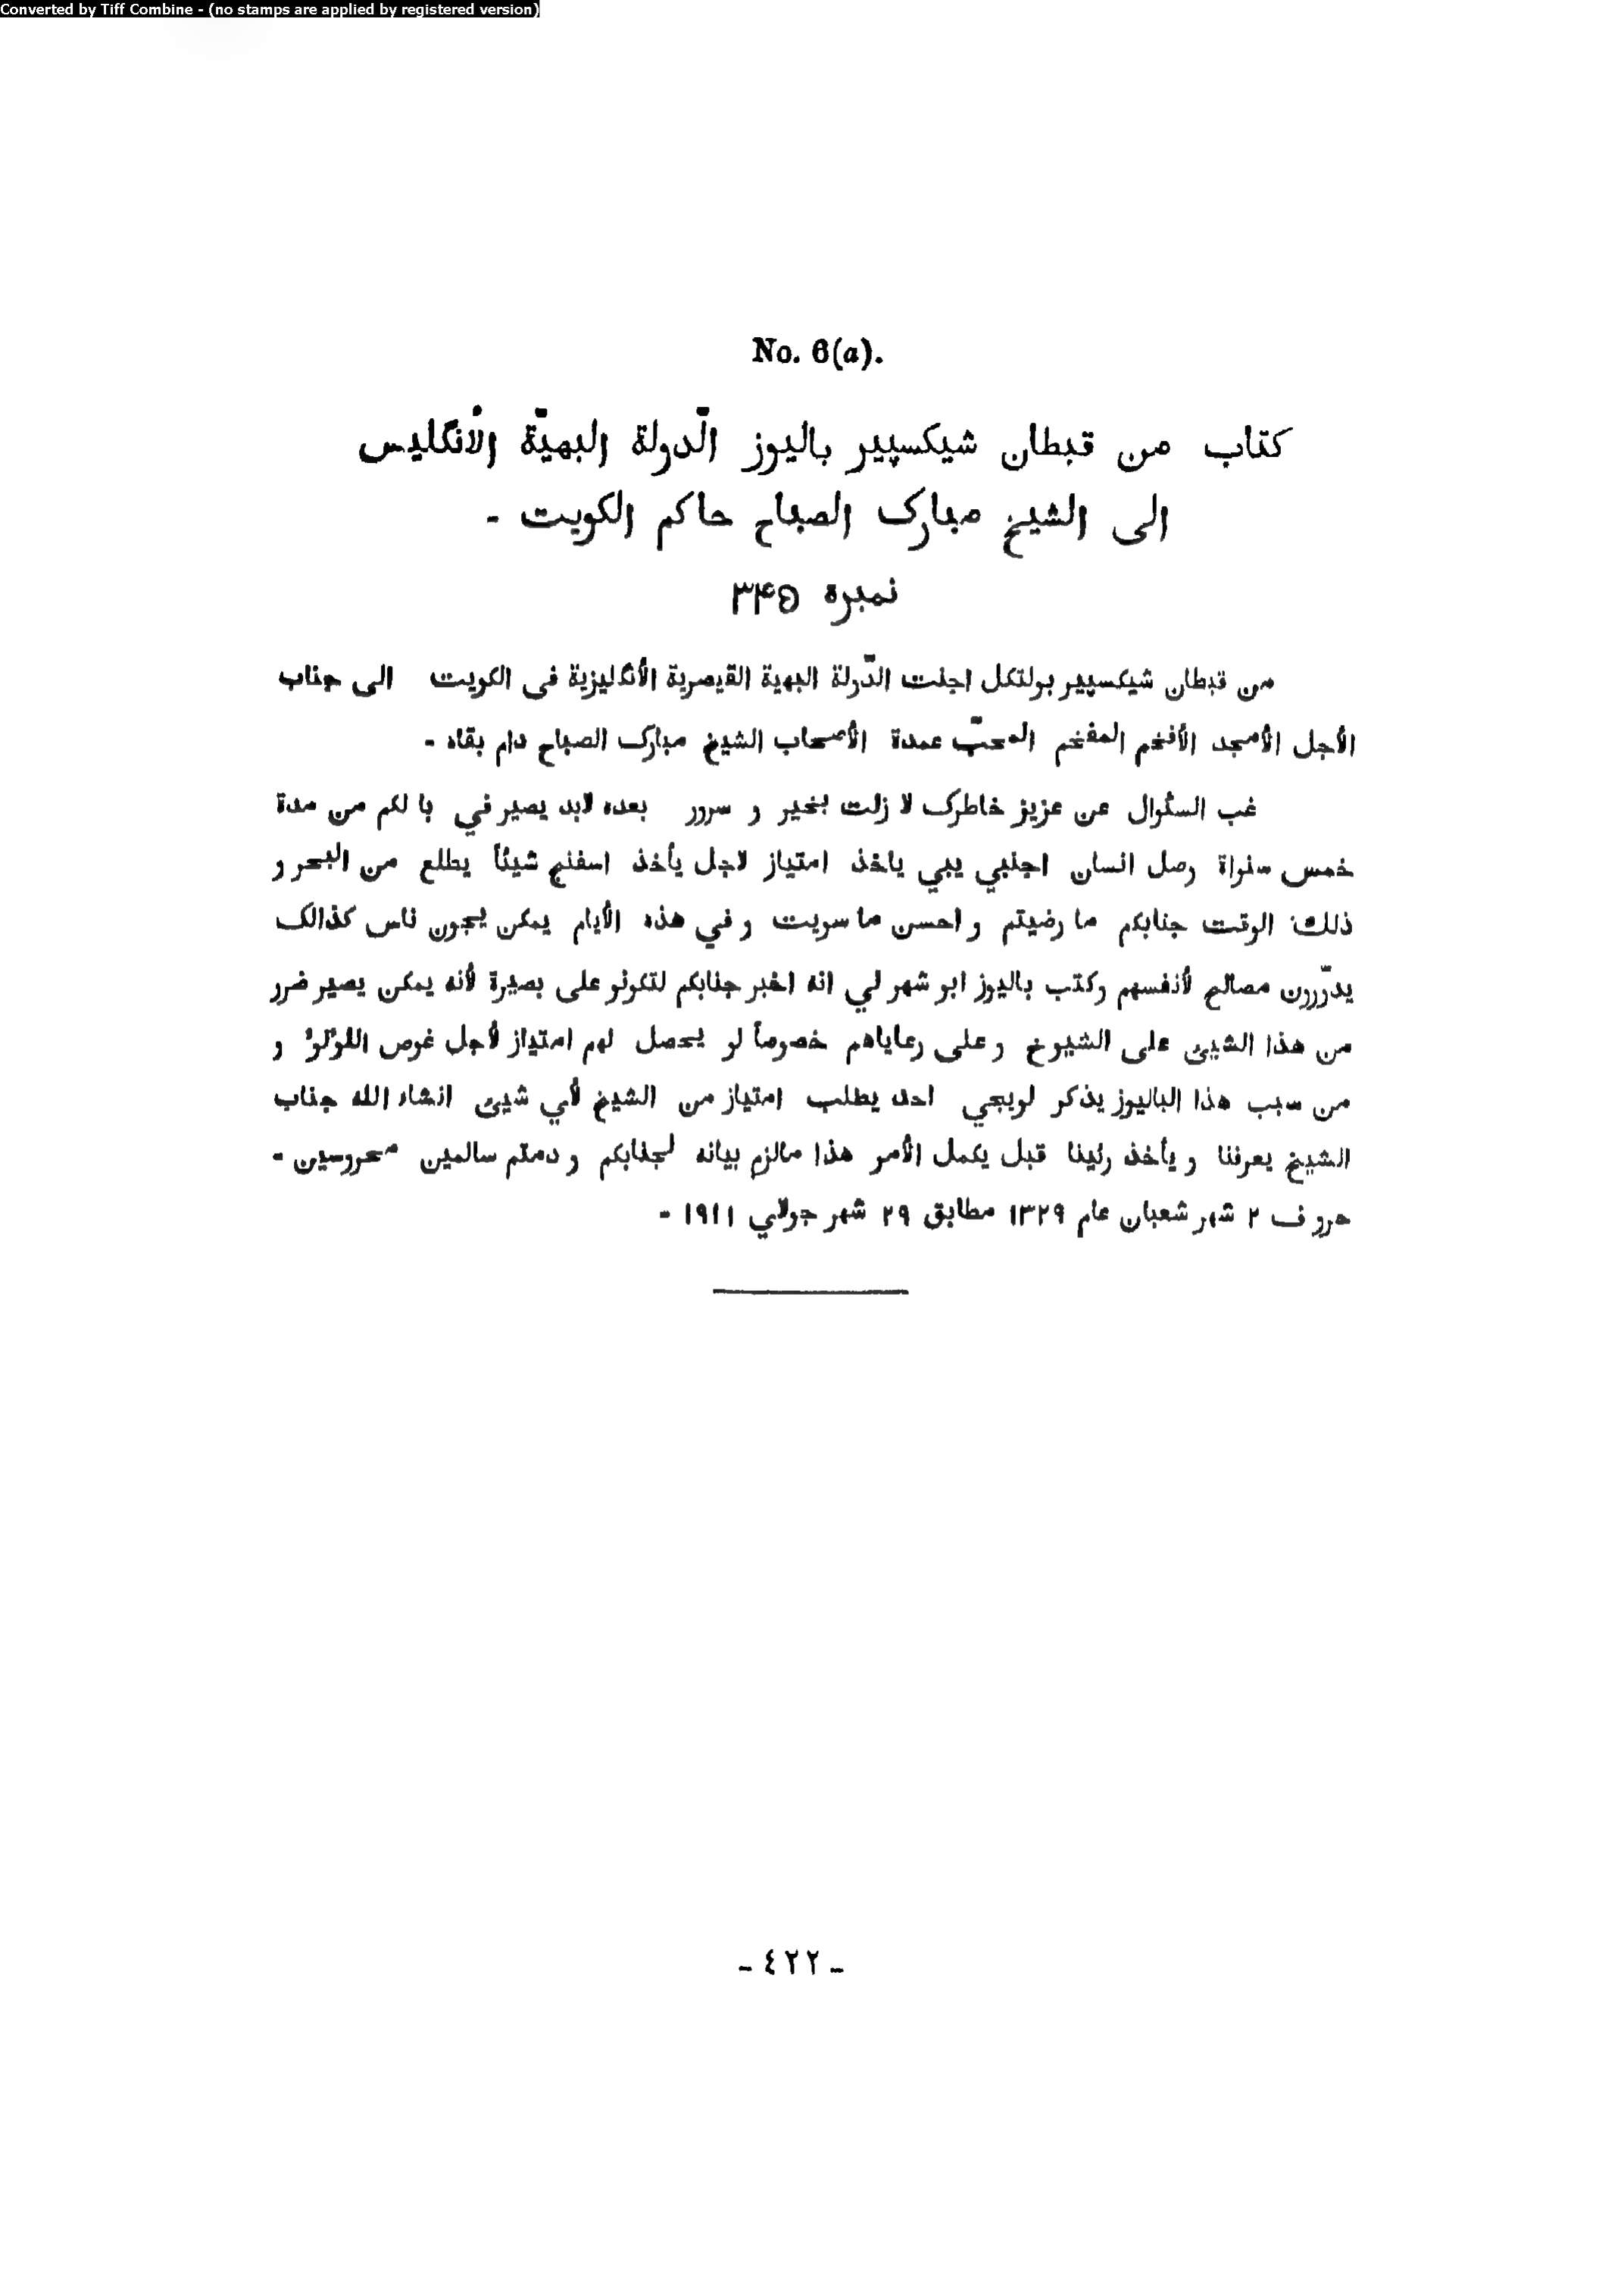 Converted by Tiff Combine - (no stamps are applied by registered version)
No. 6(a).
كتاب من قبطان شيكسپير باليوز الّدولة البهيّة الأنگليس
الى الشيخ مبارک الصباح حاكم الكويت -
نمبرة ۳۴۵
من قبطان شيكسپير بولتكل اجنت الدّولة البهية القيصرية الأنگليزية فى الكويت الى جناب
الأجل الأمجد الأفخم المفخم المحبّ عمدة الأصحاب الشيخ مبارک الصباح دام بقاه -
غب السئوال عن عزيز خاطرک لا زلت بخير و سرور بعده لابد يصير في با لكم من مدة
خمس سنواة وصل انسان اجنبي يبي ياخذ امتياز لاجل يأخذ اسفنج شيئاً يطلع من البحر و
ذلك الوقت جنابكم ما رضيتم و احسن ما سويت و في هذه الأيام يمكن يجون ناس كذالک
يدوّرون مصالح لأنفسهم وكتب باليوز ابو شهر لي انه اخبر جنابكم لتكونو على بصيرة لأنه يمكن يصير ضرر
من هذا الشيئ على الشيوخ و على رعاياهم خصوصاً لو يحصل لهم امتياز لأجل غوص اللؤلؤ و
من سبب هذا الباليوز يذكر لويجي احد يطلب امتياز من الشيخ لأي شيئ انشاء الله جناب
الشيخ يعرفنا و يأخذ رئينا قبل يكمل الأمر هذا مالزم بيانه لجنابكم و دمتم سالمين محروسين -
حرو ف ٢ شهر شعبان عام ١٣٢٩ مطابق ٢٩ شهر جولائي ١٩١١ -
- ٤٢٢ -